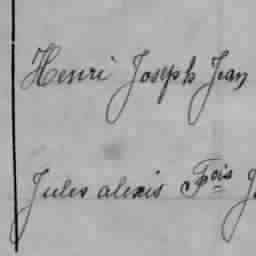 Henri Joseph Jean
Jules alexis Fois